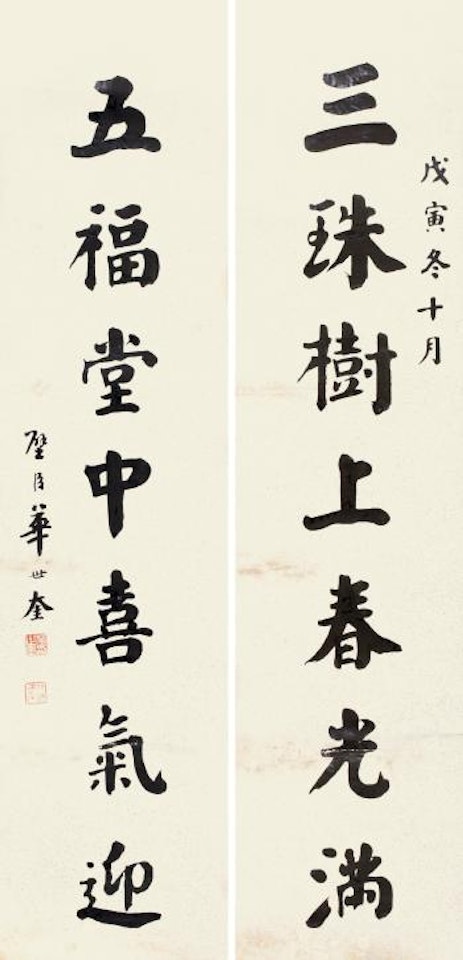 戊寅冬十月
三珠樹上春光滿
五福堂中喜氣迎
璧臣華世奎